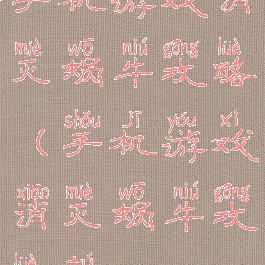 手机游戏消
miè wō niú gōng lüè
灭蜗牛攻略
shǒu jī yóu xì
(手机游戏
xiāo miè wō niú gōng
消灭蜗牛攻
lüè